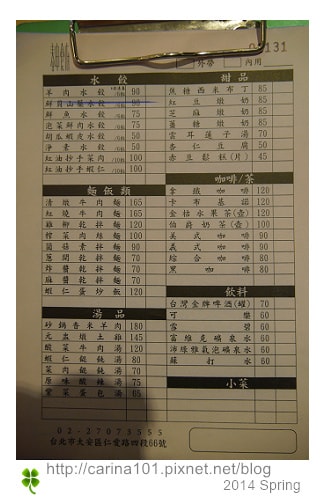 131
外帶 內用
水餃
羊肉水餃 90
鮮魚水餃 75
泡菜鮮肉水餃 75
胡瓜蝦皮水餃 50
淨素水餃 50
紅油抄手菜肉 100
紅油抄手蝦仁 100
麵飯類
清燉牛肉麵 165
紅燒牛肉麵 165
雞柳乾拌麵 120
榨菜肉絲麵 100
菌菇素拌麵 90
蔥開乾拌麵 70
炸醬乾拌麵 70
麻醬乾拌麵 70
蝦仁蛋炒飯 120
湯品
砂鍋香米羊肉 180
元盅燉土雞 145
酸菜牛肉湯 120
蝦仁餛飩湯 80
菜肉餛飩湯 70
原味酸辣湯 75
紫菜蛋包湯 65
甜品
焦糖西米布丁 85
紅豆嫩奶 85
芝麻嫩奶 85
薑糖嫩奶 85
雲耳蓮子湯 70
杏仁豆腐 50
赤豆鬆糕(片) 45
咖啡/茶
拿鐵咖啡 120
卡布基諾 120
金桔水果茶(壺) 120
伯爵奶茶(壺) 100
美式咖啡 90
義式咖啡 90
綜合咖啡 80
黑咖啡 80
飲料
台灣金牌啤酒(罐) 70
可樂 60
雪碧 60
富維克礦泉水 60
沛綠雅氣泡礦泉水 60
蘇打水 60
小菜
02-27073555
台北市大安區仁愛路四段66號
http://carina101.pixnet.net/blog
2014 Spring